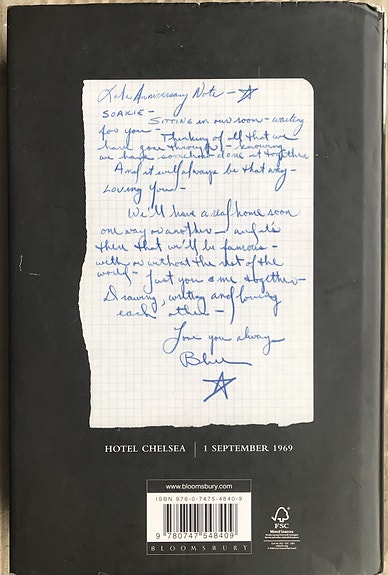 Late Anniversary Note -
SOAKIE -
SITTING in our room - writing
for you - Thinking of all that we
have gone through - knowing
we have somehow done it together
And it will always be that way -
Loving you -
We'll have a real home soon
one way or another - and it's
there that we'll be famous -
with or without the rest of the
world - Just you & me together -
Drawing, writing and loving
each other -
Love you always
Blue
HOTEL CHELSEA | 1 SEPTEMBER 1969
www.bloomsbury.com
ISBN 978-0-7475-4840-9
9 780747 548409
BLOOMSBURY
FSC
Mixed Sources